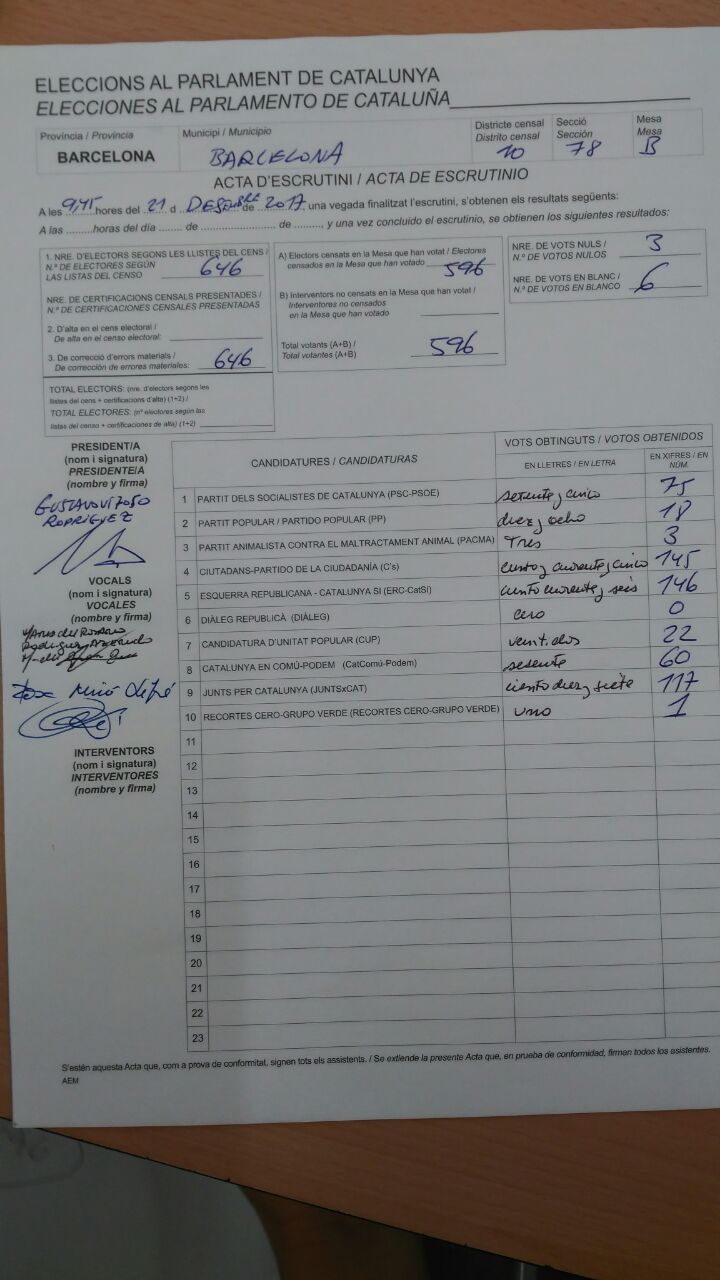 ELECCIONS AL PARLAMENT DE CATALUNYA
ELECCIONES AL PARLAMENTO DE CATALUÑA
Província / Provincia
BARCELONA
Municipi / Municipio
BARCELONA
Districte censal
Distrito censal
10
Secció
Sección
78
Mesa
Mesa
B
ACTA D'ESCRUTINI / ACTA DE ESCRUTINIO
A les 9,45 hores del 21 d DESEMBRE de 2017 una vegada finalitzat l'escrutini, s'obtenen els resultats següents:
A las ........ horas del día ....... de ........................ de ........, y una vez concluido el escrutinio, se obtienen los siguientes resultados:
1. NRE. D'ELECTORS SEGONS LES LLISTES DEL CENS /
N.º DE ELECTORES SEGÚN
LAS LISTAS DEL CENSO 646
NRE. DE CERTIFICACIONS CENSALS PRESENTADES /
N.º DE CERTIFICACIONES CENSALES PRESENTADAS
2. D'alta en el cens electoral /
De alta en el censo electoral:
3. De correcció d'errors materials /
De corrección de errores materiales: 646
TOTAL ELECTORS: (nre. d'electors segons les
llistes del cens + certificacions d'alta) (1+2) /
TOTAL ELECTORES: (nº electores según las
listas del censo + certificaciones de alta) (1+2)
A) Electors censats en la Mesa que han votat / Electores
censados en la Mesa que han votado 596
B) Interventors no censats en la Mesa que han votat /
Interventores no censados
en la Mesa que han votado
Total votants (A+B) /
Total votantes (A+B) 596
NRE. DE VOTS NULS /
N.º DE VOTOS NULOS 3
NRE. DE VOTS EN BLANC /
N.º DE VOTOS EN BLANCO 6
PRESIDENT/A
(nom i signatura)
PRESIDENTE/A
(nombre y firma)
GUSTAVO
RODRIGUEZ
VOCALS
(nom i signatura)
VOCALES
(nombre y firma)
INTERVENTORS
(nom i signatura)
INTERVENTORES
(nombre y firma)
CANDIDATURES / CANDIDATURAS
VOTS OBTINGUTS / VOTOS OBTENIDOS
EN LLETRES / EN LETRA
EN XIFRES / EN NÚM.
1 PARTIT DELS SOCIALISTES DE CATALUNYA (PSC-PSOE) setenta y cinco 75
2 PARTIT POPULAR / PARTIDO POPULAR (PP) diez y ocho 18
3 PARTIT ANIMALISTA CONTRA EL MALTRACTAMENT ANIMAL (PACMA) Tres 3
4 CIUTADANS-PARTIDO DE LA CIUDADANÍA (C's) ciento y cuarenta y cinco 145
5 ESQUERRA REPUBLICANA - CATALUNYA SI (ERC-CatSí) ciento cuarenta y seis 146
6 DIÀLEG REPUBLICÀ (DIÀLEG) cero 0
7 CANDIDATURA D'UNITAT POPULAR (CUP) veintidos 22
8 CATALUNYA EN COMÚ-PODEM (CatComú-Podem) sesenta 60
9 JUNTS PER CATALUNYA (JUNTSxCAT) ciento diez y siete 117
10 RECORTES CERO-GRUPO VERDE (RECORTES CERO-GRUPO VERDE) uno 1
11
12
13
14
15
16
17
18
19
20
21
22
23
S'estén aquesta Acta que, com a prova de conformitat, signen tots els assistents. / Se extiende la presente Acta que, en prueba de conformidad, firman todos los asistentes.
AEM